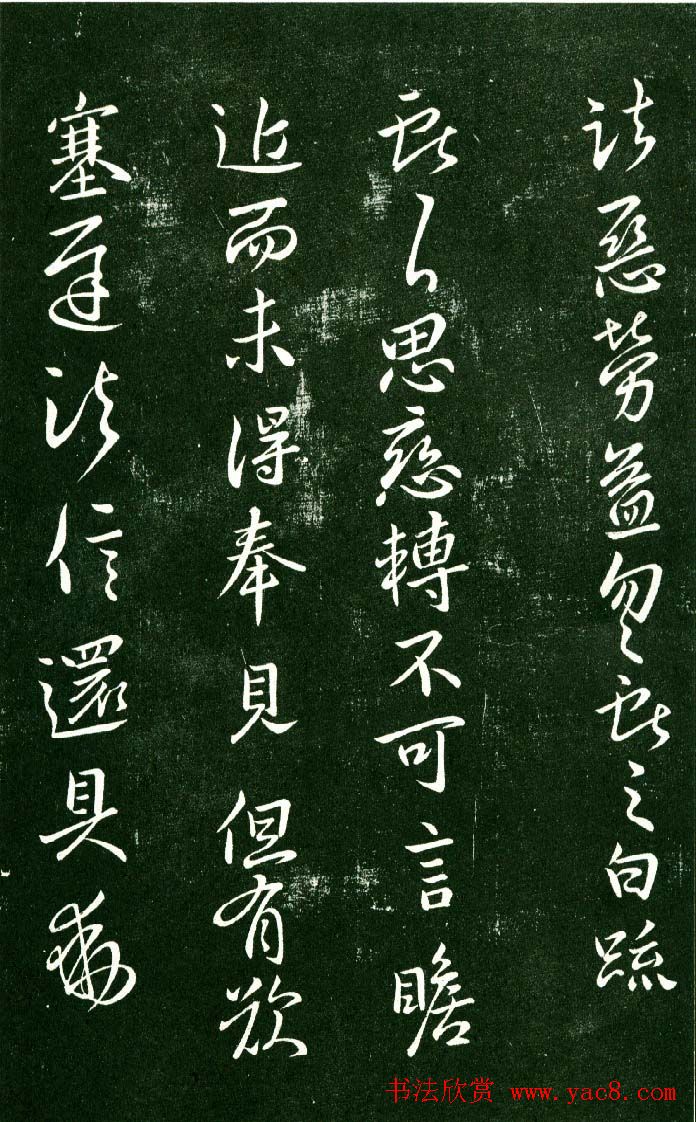 諸惡勞益勿勿獻之白疏
獻思戀轉不可言瞻
近而未得奉見但有歎
塞遲諸信還具動
书法欣赏 www.yac8.com